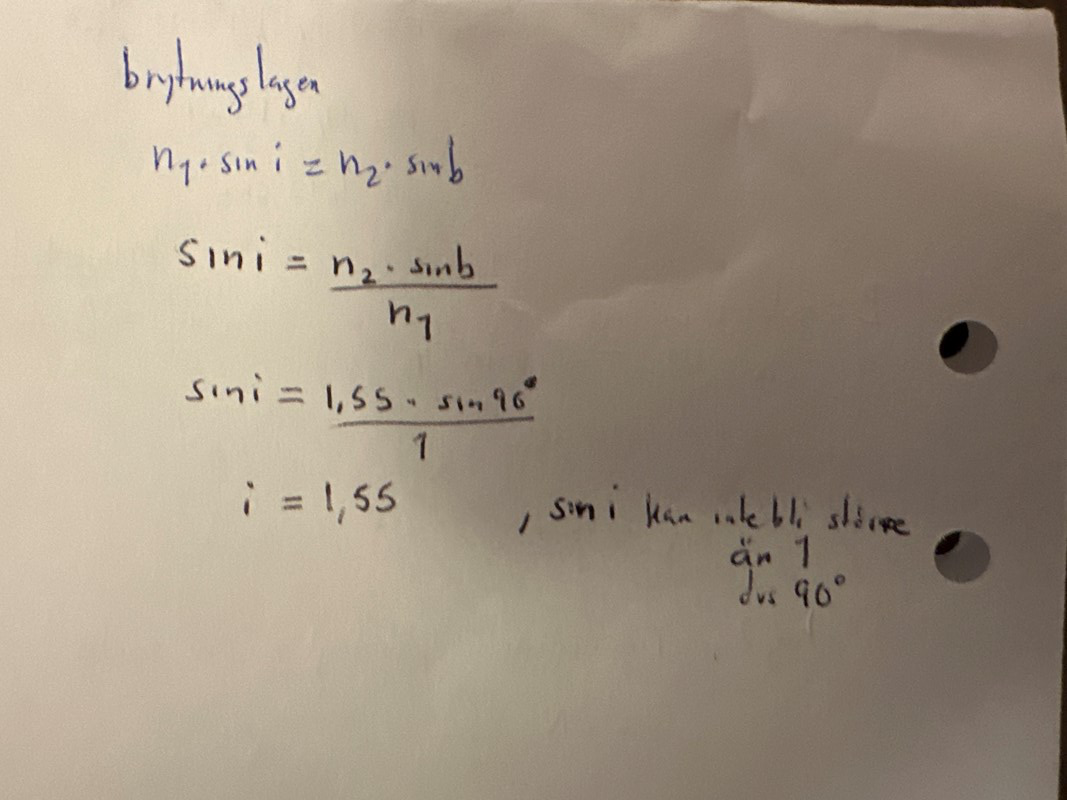 brytningslagen
n₁ · sin i = n₂ · sin b
sin i = n₂ · sin b / n₁
sin i = 1,55 · sin 90° / 1
i = 1,55 , sin i kan inte bli större
än 1
dvs 90°